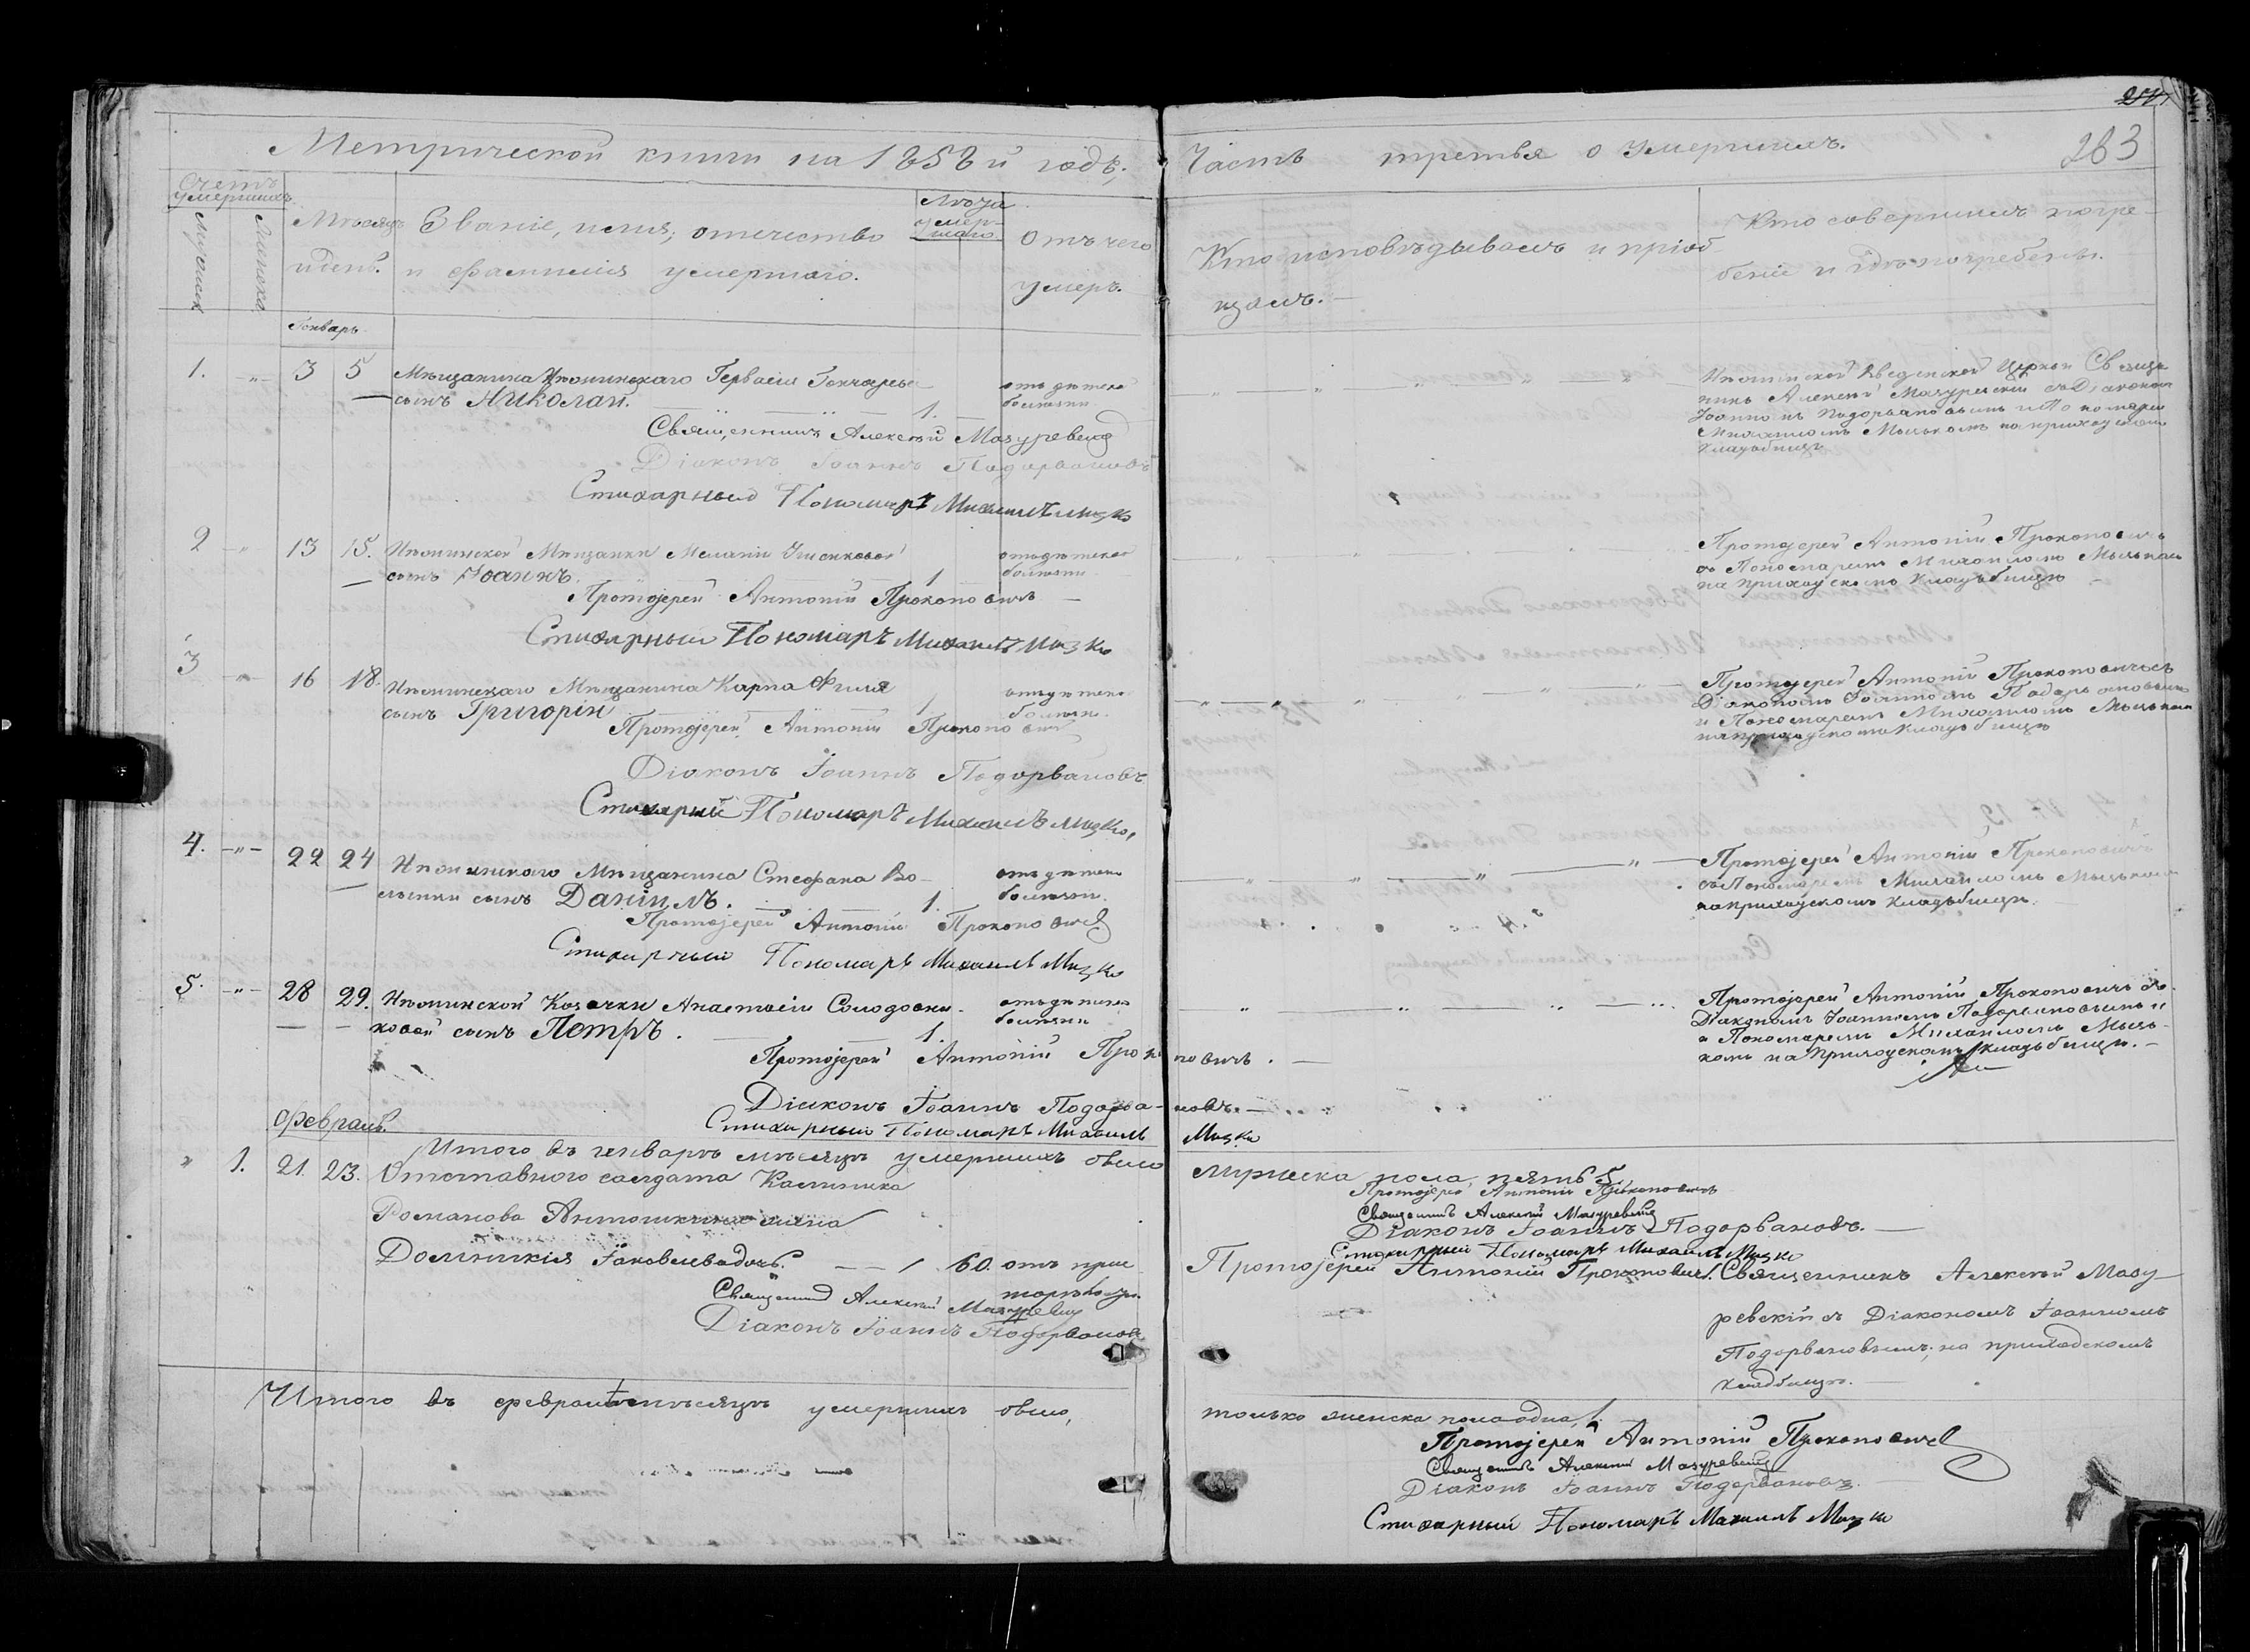 Метрической книги на 1858й годъ,
Часть третья о умершихъ.
283
Счетъ умершихъ.
Мужеска
Женска
Мѣсяцъ и день.
Званіе, имя, отечество
и фамилія умершаго.
Лѣта умершаго
Отъ чего
умеръ.
Кто исповѣдывалъ и пріоб
щалъ.
Кто совершилъ погре-
беніе и гдѣ погребены.
Генварь
1. 3 5 Мѣщанина Нѣжинскаго Гервасія Гончарь
сынъ Николай. 1.
отъ дѣтской
болѣзни
Нѣжинской Введенской Церкви Священ
никъ Алексѣй Мазуревскій съ Діакономъ
Іоанномъ Подорвановымъ и Пономаремъ
Михаиломъ Мыськомъ на приходскомъ
кладбищѣ
Священникъ Алексѣй Мазуревскій
Діаконъ Іоаннъ Подорвановъ
Стихарный Пономарь Михаилъ Мызко
2 13 15. Нѣжинской Мѣщанки Меланіи
сынъ Іоаннъ. 1
отъ дѣтской
болѣзни
Протоіерей Антоній Прокоповичъ
съ Пономаремъ Михаиломъ Мыськом
на приходскомъ кладьбищѣ
Протоіерей Антоній Прокоповичъ
Стихарный Пономарь Михаилъ Мызко
3 16 18. Нѣжинскаго Мѣщанина Карпа Филя
сынъ Григорій 1
отъ дѣтской
болѣзни.
Протоіерей Антоній Прокоповичъ съ
Діакономъ Іоанномъ Подорвановымъ
и Пономаремъ Михаиломъ Мыськом
на приходскомъ кладьбищѣ
Протоіерей Антоній Прокоповичъ
Діаконъ Іоаннъ Подорвановъ
Стихарный Пономарь Михаилъ Мызко,
4. 22 24 Нѣжинскаго Мѣщанина Стефана Во-
сынъ Даніилъ. 1.
отъ дѣтской
болѣзни.
Протоіерей Антоній Прокоповичъ
съ Пономаремъ Михаиломъ Мыськом
на приходскомъ кладьбищѣ.
Протоіерей Антоній Прокоповичъ
Стихарный Пономарь Михаилъ Мызко
5. 28 29. Нѣжинской Козачки Анастасіи Солодовни-
ковой сынъ Петръ. 1.
отъ дѣтской
болѣзни
Протоіерей Антоній Прокоповичъ съ
Діакономъ Іоанномъ Подорвановымъ и
Пономаремъ Михаиломъ Мысь-
комъ на приходскомъ кладьбищѣ.
Протоіерей Антоній Прокоповичъ.
Діаконъ Іоаннъ Подорвановъ.
Стихарный Пономарь Михаилъ Мызко
Итого въ генварѣ мѣсяцѣ умершихъ обоего
мужеска пола пять 5
Протоіерей Антоній Прокоповичъ
Священникъ Алексѣй Мазуревскій
Діаконъ Іоаннъ Подорвановъ.
Стихарный Пономарь Михаилъ Мызко
Февраль.
1. 21. 23. Отставного салдата Калиника
Романова жена
Домникія Іаковлева дочь. 1 60. отъ
Протоіерей Антоній Прокоповичъ.
Священникъ Алексѣй Мазу-
ревскій съ Діакономъ Іоанномъ
Подорвановымъ, на приходскомъ
кладбищѣ.
Священникъ Алексѣй Мазуревскій
Діаконъ Іоаннъ Подорвановъ
Итого въ февралѣ мѣсяцѣ умершихъ обоего,
только женска пола одна, 1.
Протоіерей Антоній Прокоповичъ
Священникъ Алексѣй Мазуревскій
Діаконъ Іоаннъ Подорвановъ.
Стихарный Пономарь Михаилъ Мызко